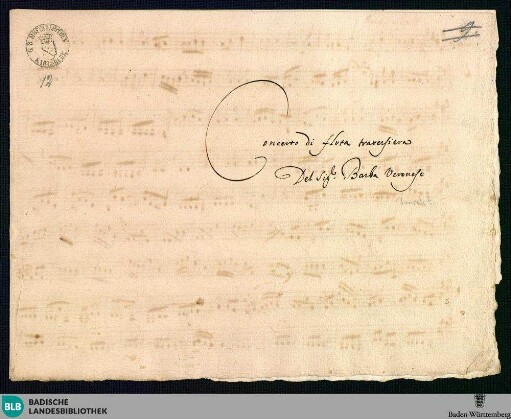 9
12
Concerto di fluta traversiera
Del Sigr. Barba Veronese
BLB BADISCHE
LANDESBIBLIOTHEK
Baden-Württemberg